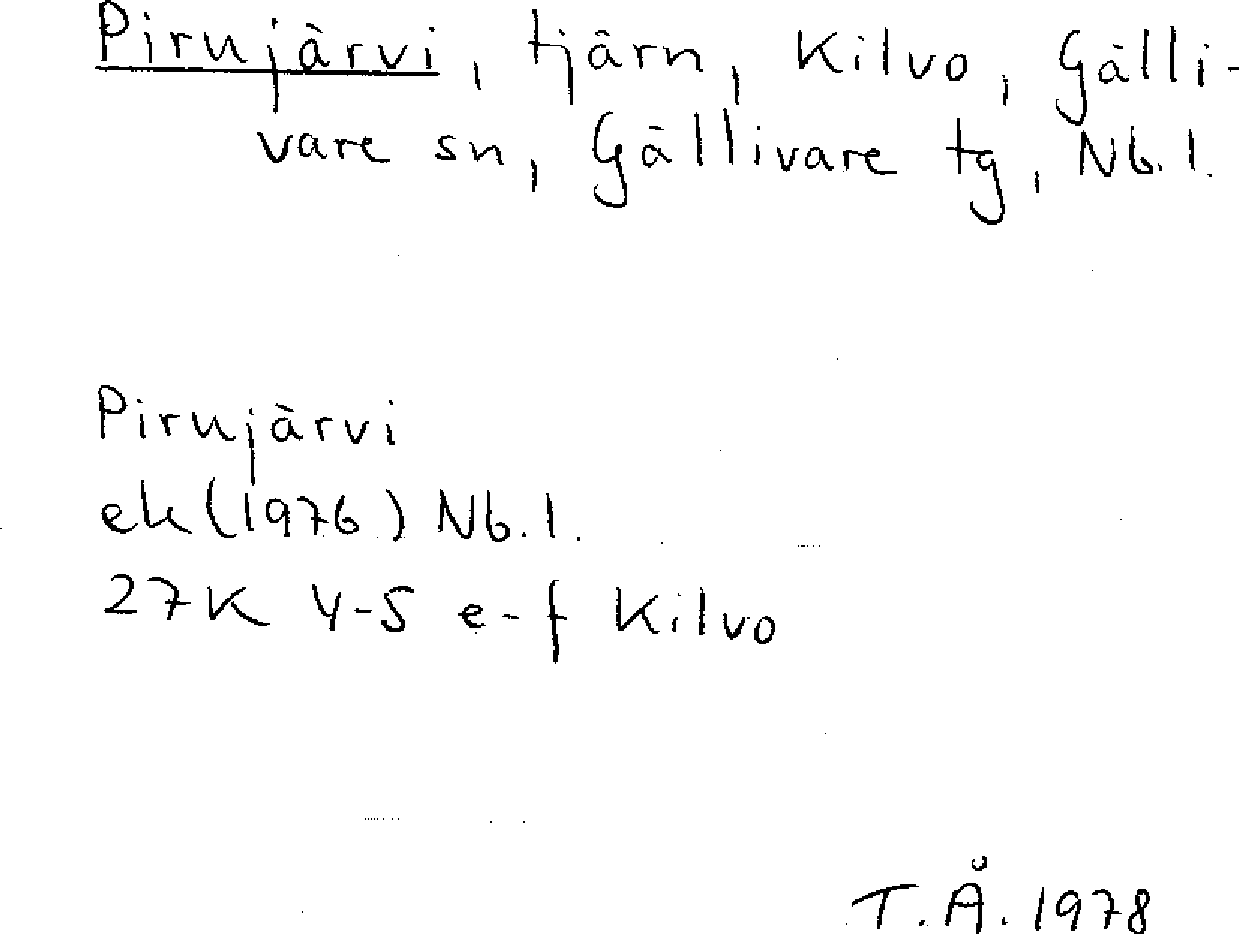 Pirujärvi, tjärn, Kilvo, Gälli-
vare sn, Gällivare tg, Nb. l.
Pirujärvi
ek (1976) Nb. l.
27K 4-5 e-f Kilvo
T. Å. 1978